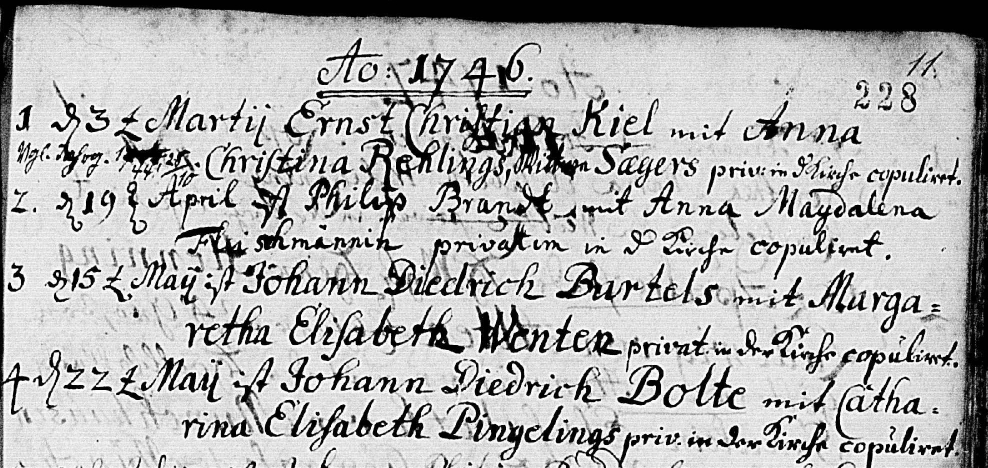 11.
Ao: 1746.
228
1 d 3 t Martij Ernst Christian Kiel mit Anna
Vgl. Christina Rehlings, Wittwe Sægers priv: in d Kirche copuliret.
2. d 19 t April ist Philip Brandt mit Anna Magdalena
Fleischmännin privatim in d Kirche copuliret.
3 d 15 t. Maij ist Johann Diedrich Bartels mit Marga=
retha Elisabeth Wenten privat in der Kirche copuliret.
4 d 22 t Maij ist Johann Diedrich Bolte mit Catha=
rina Elisabeth Pingelings priv. in der Kirche copuliret.